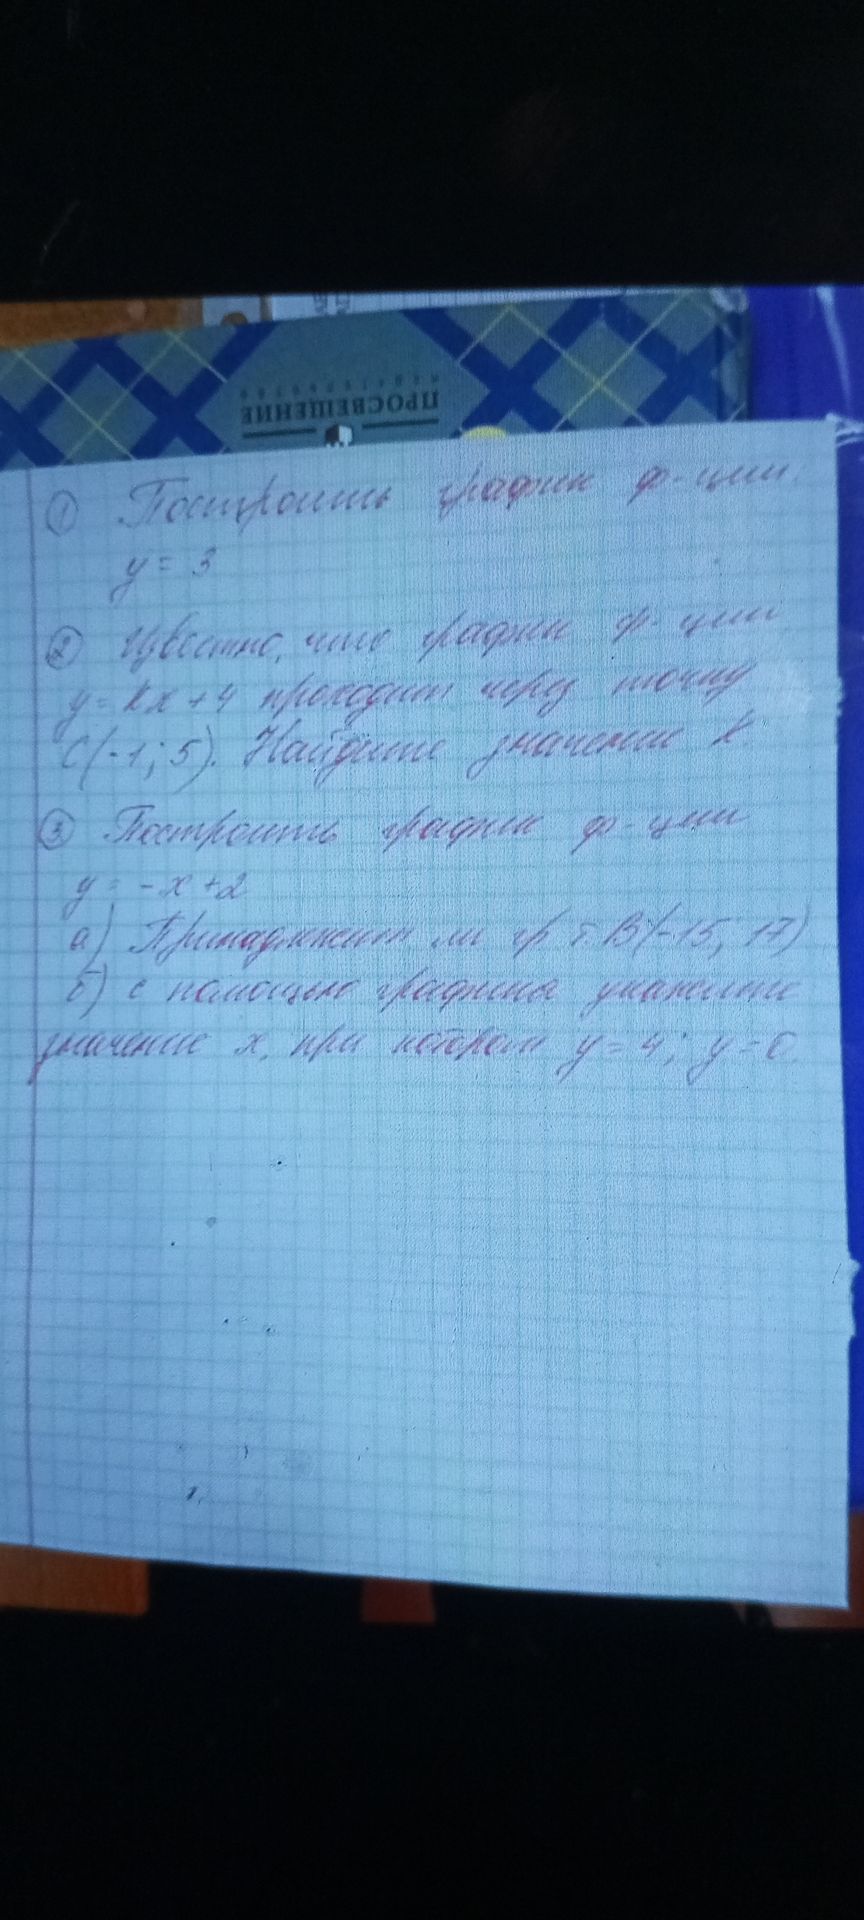 ПРОСВЕЩЕНИЕ
① Построить график ф-ции:
y = 3
② Известно, что график ф-ции
y = kx + 4 проходит через точку
C(-1; 5). Найдите значение k.
③ Построить график ф-ции
y = -x + 2
а) Принадлежит ли гр т. B(-15; 17)
б) с помощью графика укажите
значение x, при котором y = 4; y = 0.